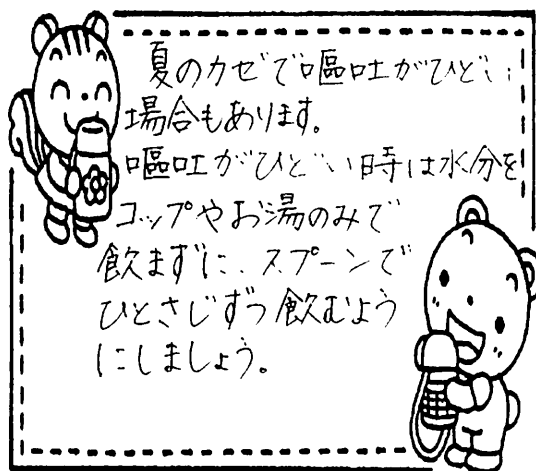 夏のカゼで嘔吐がひどい
場合もあります。
嘔吐がひどい時は水分を
コップやお湯のみで
飲まずに、スプーンで
ひとさじずつ飲むよう
にしましょう。